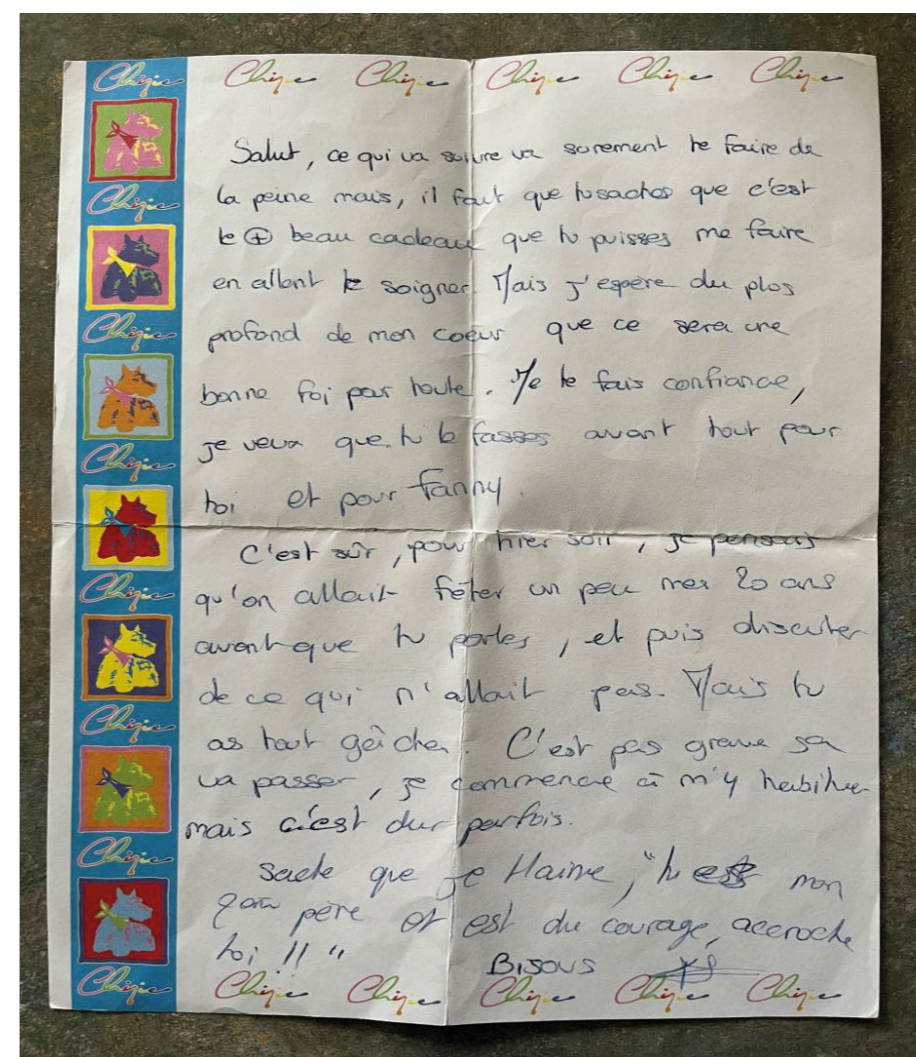 Chipie Chipie Chipie Chipie Chipie Chipie
Salut, ce qui va suivre va surement te faire de
Chipie
la peine mais, il faut que tu saches que c'est
le + beau cadeau que tu puisses me faire
en allent te soigner. Mais j'espère du plus
Chipie
profond de mon coeur que ce sera une
bonne foi pour toute. Je te fais confiance,
Chipie
je veux que tu le fasses avant tout pour
toi et pour Fanny.
C'est sûr, pour hier soir, je pensais
Chipie
qu'on allait fêter un peu mes 20 ans
avant que tu partes, et puis discuter
de ce qui n'allait pas. Mais tu
Chipie
as tout gâcher. C'est pas grave sa
va passer, je commence à m'y habituer
mais c'est dur parfois.
Chipie
Sache que je t'aime, "tu est mon
père et est du courage, accroche
toi !! "
BISOUS
Chipie Chipie Chipie Chipie Chipie Chipie